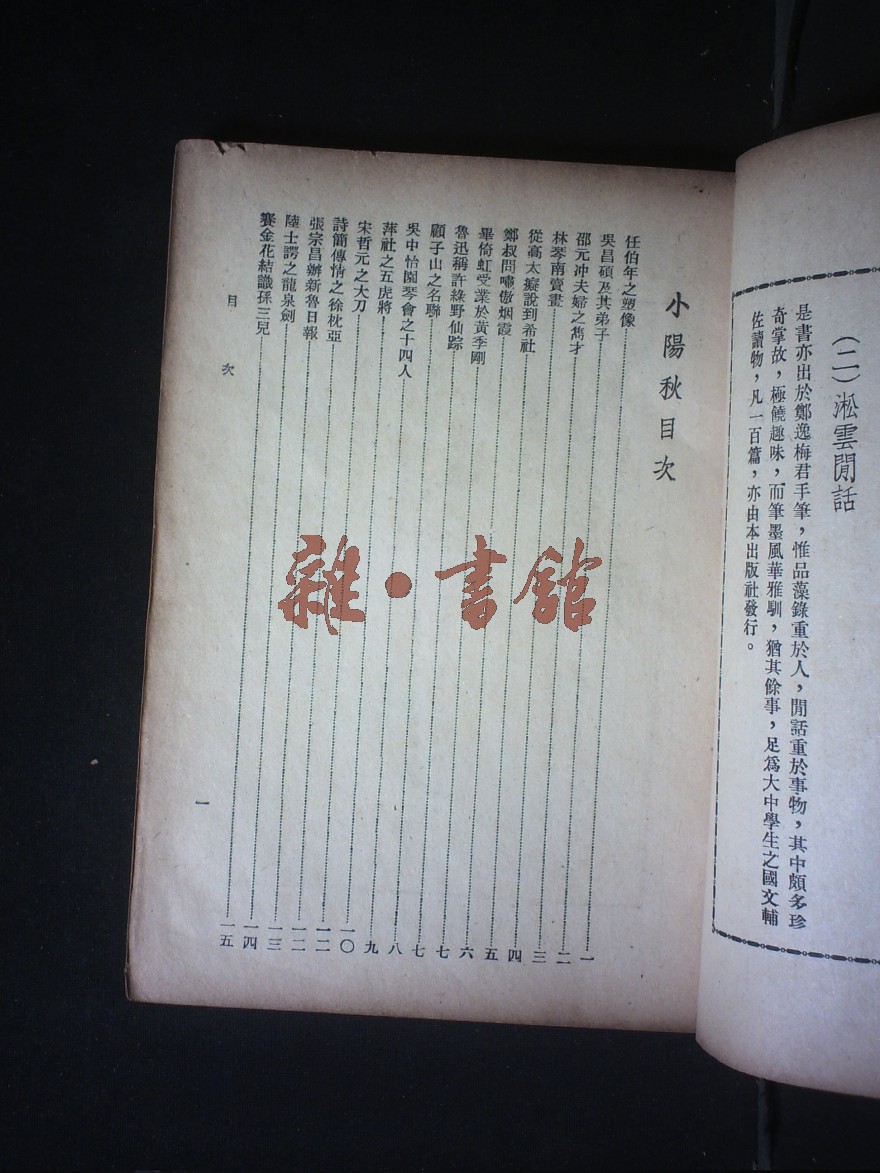 （二）淞雲閒話
是書亦出於鄭逸梅君手筆，惟品藻錄重於人，閒話重於事物，其中頗多珍
奇掌故，極饒趣味，而筆墨風華雅馴，猶其餘事，足爲大中學生之國文輔
佐讀物，凡一百篇，亦由本出版社發行。
小陽秋目次
任伯年之塑像…………一
吳昌碩及其弟子…………二
邵元冲夫婦之雋才…………三
林琴南賣畫…………四
從高太癡說到希社…………五
鄭叔問嘯傲烟霞…………六
畢倚虹受業於黃季剛…………七
魯迅稱許綠野仙踪…………七
顧子山之名聯…………八
吳中怡園琴會之十四人…………九
萍社之五虎將…………一〇
宋哲元之大刀…………一二
詩簡傳情之徐枕亞…………一二
張宗昌辦新魯日報…………一三
陸士諤之龍泉劍…………一四
賽金花結識孫三兒…………一五
目次
一
雜·書館